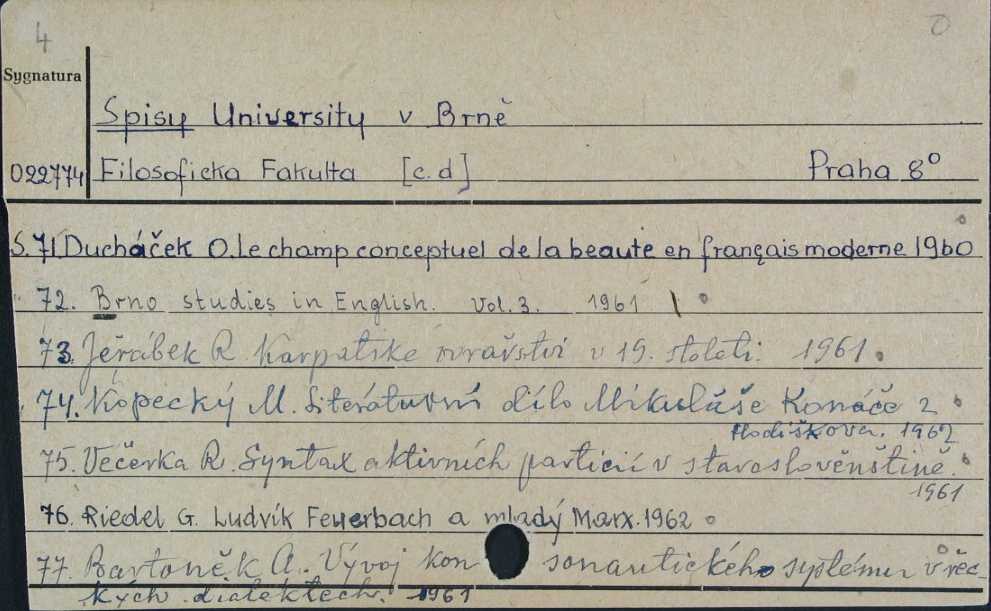 4
0
Sygnatura
Spisy University v Brně
022774 Filosoficka Fakulta [c.d] Praha 8°
S. 71. Ducháček O. Le champ conceptuel de la beaute en français moderne 1960
72. Brno studies in English. Vol. 3. 1961
73. Jeřábek R. Karpatske vorařstvi v 19. stoleti. 1961.
74. Kopecký M. Literáturni dílo Mikuláše Konáče z
Hodiškova. 1962
75. Večerka R. Syntax aktivních participií v staroslověnštině.
1961
76. Riedel G. Ludvík Feuerbach a mladý Marx. 1962
77. Bartoněk A. Vývoj konsonantického systému v řec-
kých dialektech. 1961